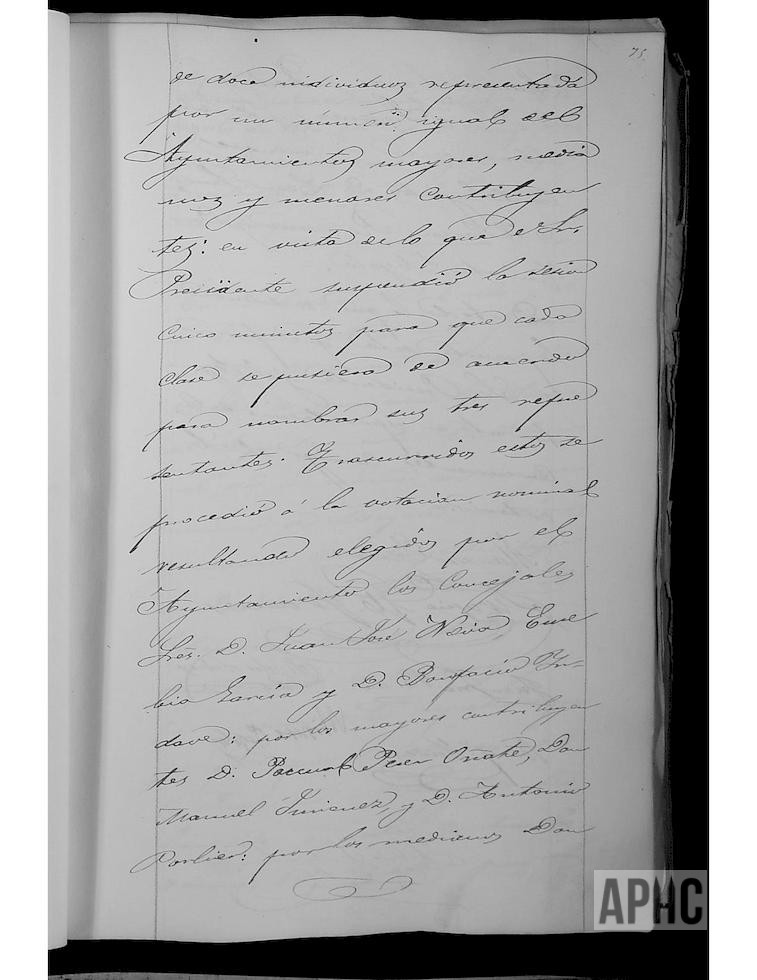 75
de doce individuos representada
por un número igual del
Ayuntamiento, mayores, media
nos y menores contribuyen
tes: en vista de lo que el Sr.
Presidente suspendió la sesion
cinco minutos para que cada
clase se pusiera de acuerdo
para nombrar sus tres repre
sentantes. Trascurridos estos se
procedió á la votacion nominal
resultando elegidos por el
Ayuntamiento los Concejales
Sres. D. Juan José Neira, Euse
bio Garcia y D. Bonifacio
dave: por los mayores contribuyen
tes D. Pascual Perez Oñate, Don
Manuel Jimenez, y D. Antonio
Porlier: por los medianos Don
APHC